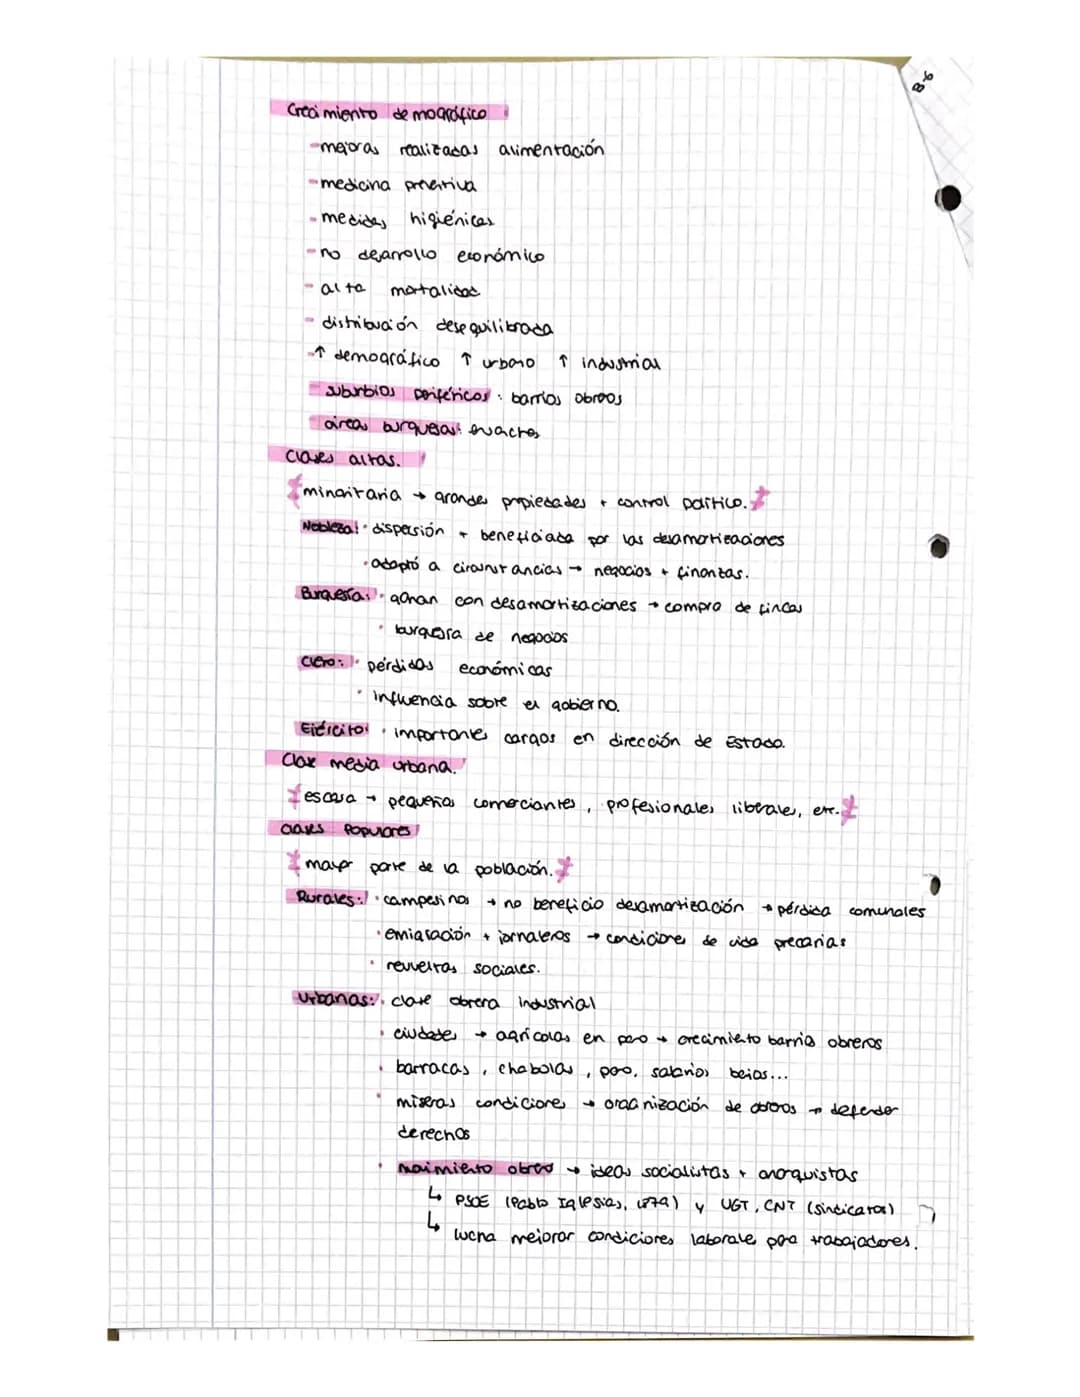 8-6
Crecimiento demográfico
-mejoras realizadas alimentación
-medicina preventiva
-medidas higiénicas
-no desarrollo económico
-alta mortalidad
-distribución desequilibrada
-↑ demográfico ↑ urbano ↑ industrial
-suburbios periféricos: barrios obreros
-áreas burguesas:
Clases altas.
*minoritaria → grandes propiedades + control político.*
Nobleza: · dispersión + beneficiada por las desamortizaciones
· adaptó a circunstancias → negocios + finanzas.
Burguesía: · ganan con desamortizaciones → compra de fincas
· burguesía de negocios
Clero: · pérdidas económicas
· influencia sobre el gobierno.
Ejército: · importantes cargos en dirección de Estado.
Clase media urbana.
*escasa → pequeños comerciantes, profesionales liberales, etc.*
Clases populares
*mayor parte de la población.*
Rurales: · campesinos → no beneficio desamortización → pérdida comunales
· emigración + jornaleros → condiciones de vida precarias
· revueltas sociales.
Urbanas: · clase obrera industrial
· ciudades → agrícolas en paro → crecimiento barrios obreros
· barracas, chabolas, paro, salarios bajos...
· míseras condiciones → organización de obreros → defender
derechos
· movimiento obrero → ideas socialistas + anarquistas
↳ PSOE (Pablo Iglesias, 1879) y UGT, CNT (sindicatos)
↳ lucha mejorar condiciones laborales para trabajadores.